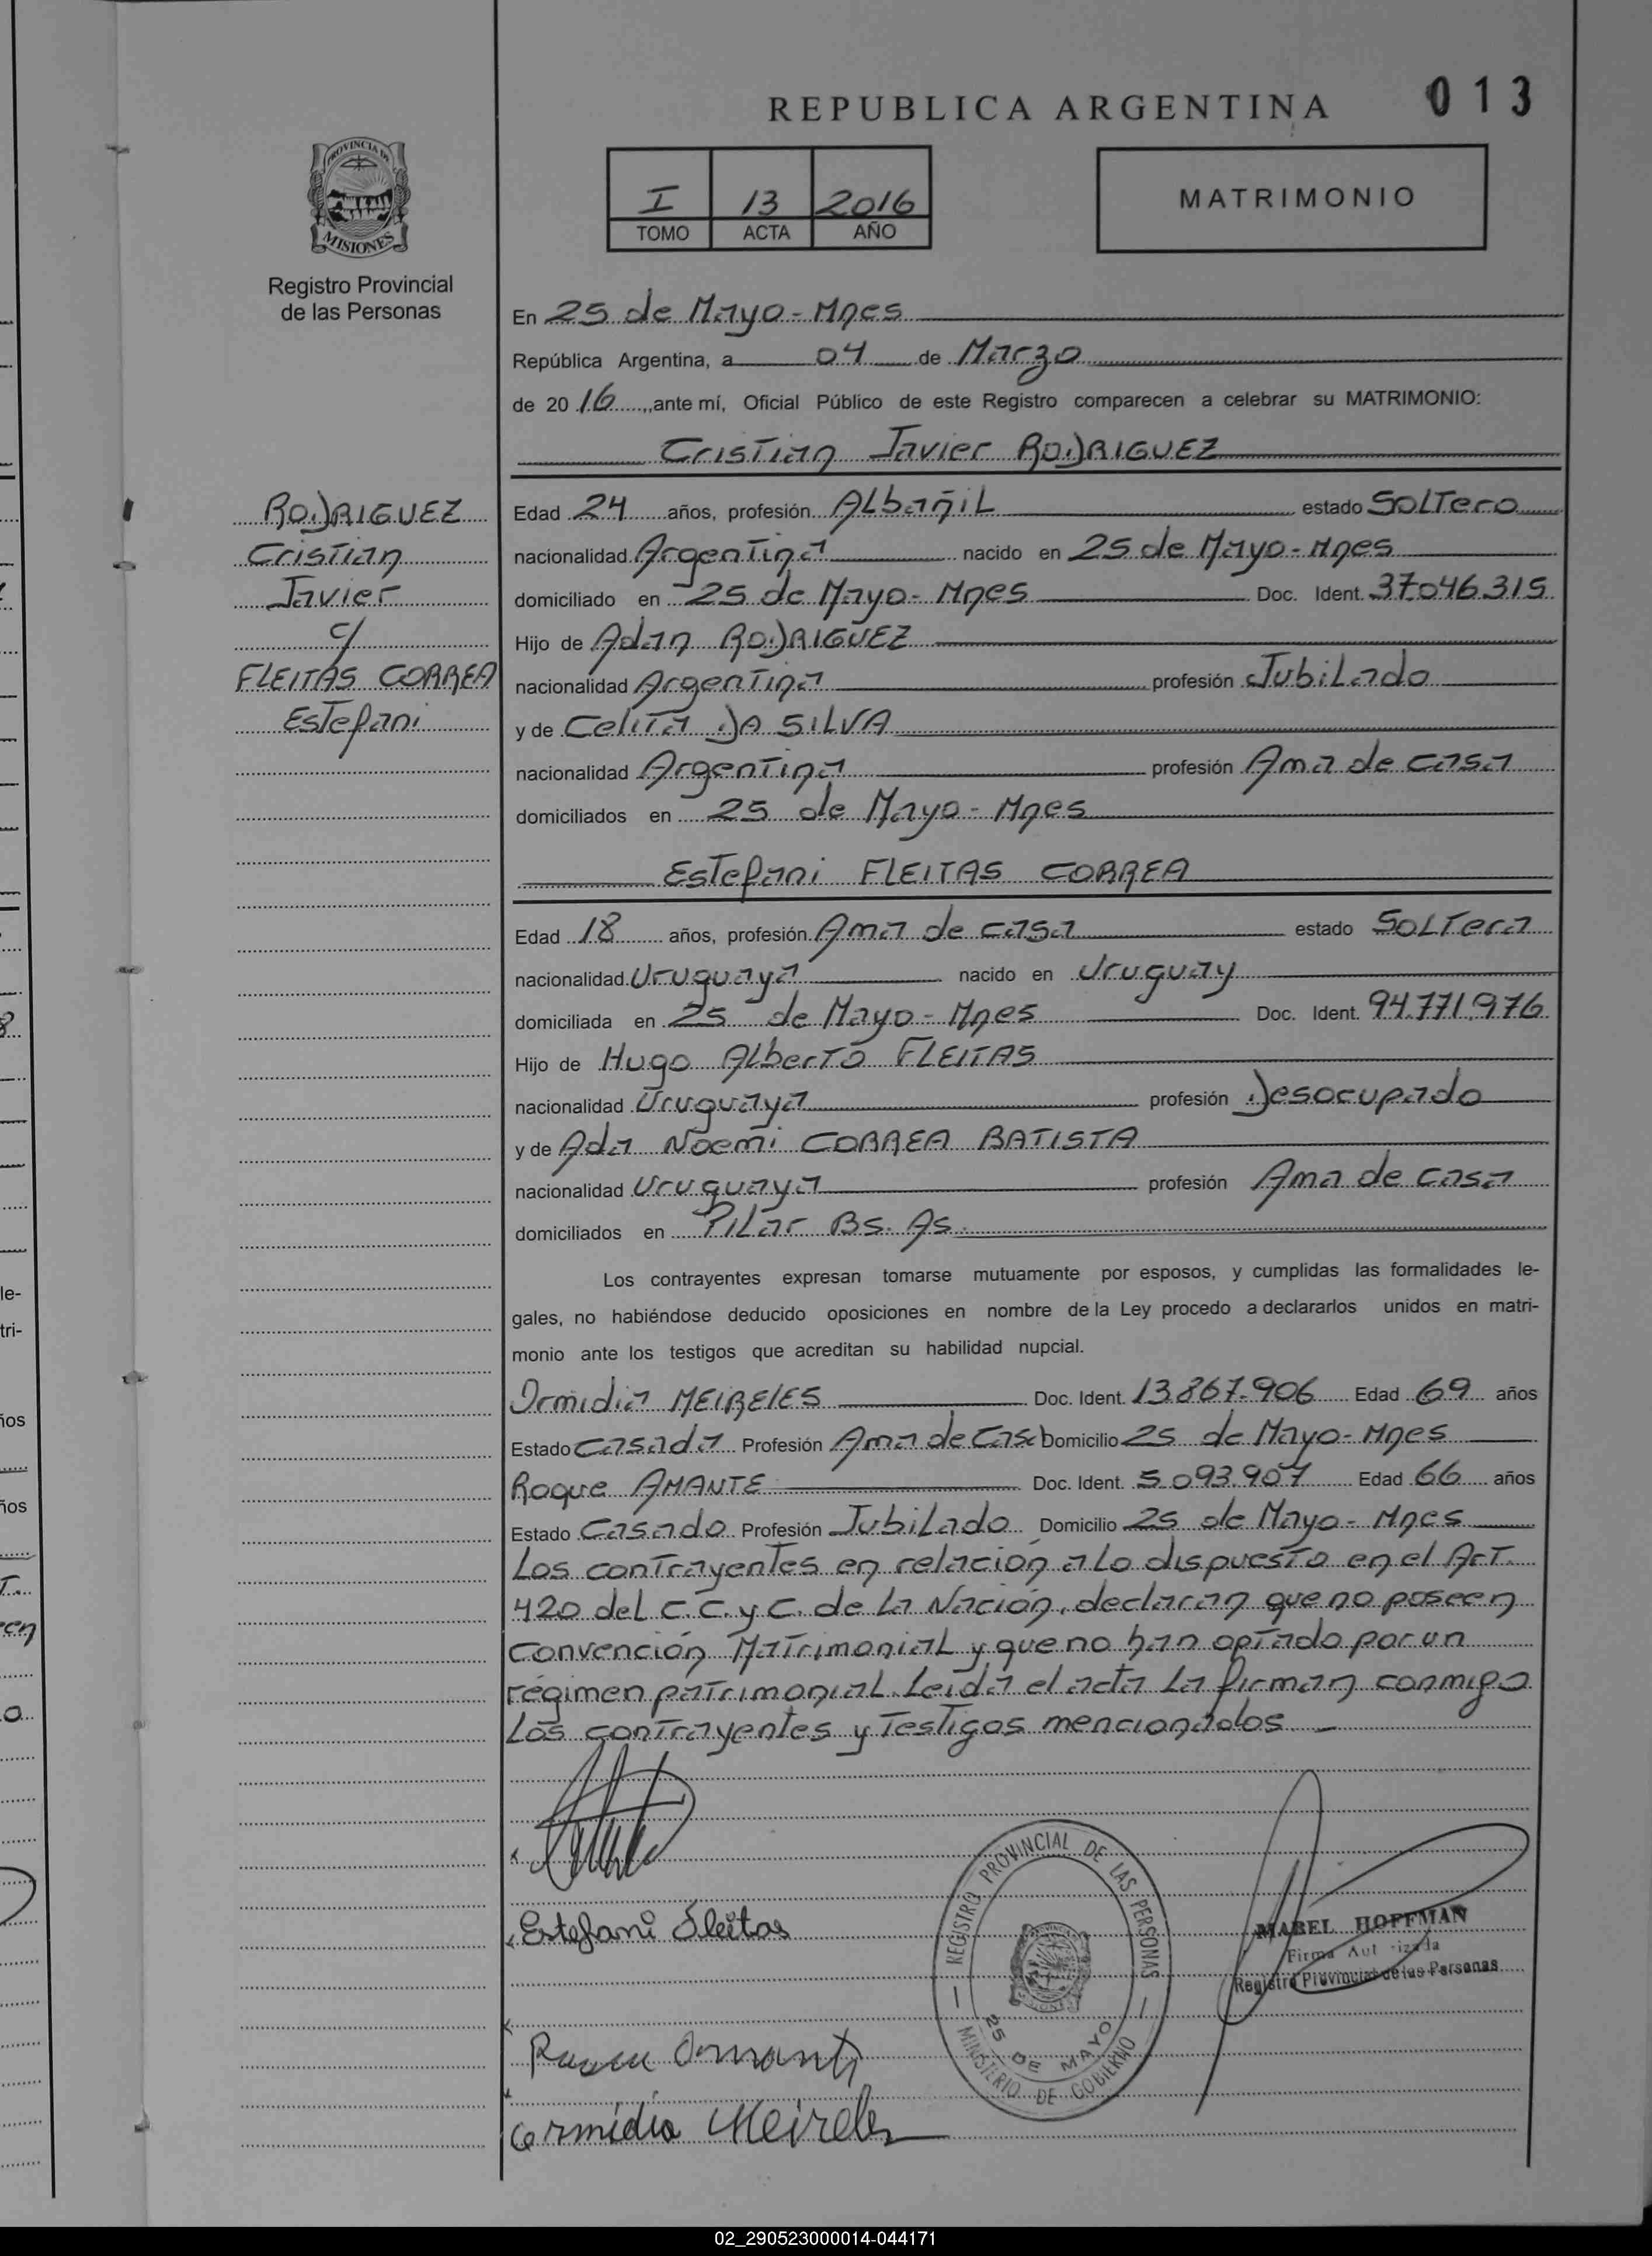 REPUBLICA ARGENTINA
013
I 13 2016
TOMO ACTA AÑO
MATRIMONIO
PROVINCIA DE
MISIONES
Registro Provincial
de las Personas
RODRIGUEZ
Cristian
Javier
c/
FLEITAS CORREA
Estefani
En 25 de Mayo - Mnes
República Argentina, a 04 de Marzo
de 2016, ante mí, Oficial Público de este Registro comparecen a celebrar su MATRIMONIO:
Cristian Javier RODRIGUEZ
Edad 24 años, profesión Albañil estado Soltero
nacionalidad Argentina nacido en 25 de Mayo - Mnes
domiciliado en 25 de Mayo - Mnes Doc. Ident. 37.046.315
Hijo de Adan RODRIGUEZ
nacionalidad Argentina profesión Jubilado
y de Celita DA SILVA
nacionalidad Argentina profesión Ama de casa
domiciliados en 25 de Mayo - Mnes
Estefani FLEITAS CORREA
Edad 18 años, profesión Ama de casa estado Soltera
nacionalidad Uruguaya nacido en Uruguay
domiciliada en 25 de Mayo - Mnes Doc. Ident. 94.771.976
Hijo de Hugo Alberto FLEITAS
nacionalidad Uruguaya profesión Desocupado
y de Ada Noemi CORREA BATISTA
nacionalidad Uruguaya profesión Ama de casa
domiciliados en Pilar Bs. As.
Los contrayentes expresan tomarse mutuamente por esposos, y cumplidas las formalidades le-
gales, no habiéndose deducido oposiciones en nombre de la Ley procedo a declararlos unidos en matri-
monio ante los testigos que acreditan su habilidad nupcial.
Ormidia MEIRELES Doc. Ident. 13.867.906 Edad 69 años
Estado Casada Profesión Ama de Casa Domicilio 25 de Mayo - Mnes
Roque AMANTE Doc. Ident. 5.093.907 Edad 66 años
Estado Casado Profesión Jubilado Domicilio 25 de Mayo - Mnes
Los contrayentes en relación a lo dispuesto en el Art.
420 del C.C. y C. de la Nación, declaran que no poseen
Convención Matrimonial y que no han optado por un
régimen patrimonial. Leida el acta la firman conmigo
Los contrayentes y Testigos mencionados -
Estefani Fleitas
Amante
Ormidia Meireles
REGISTRO PROVINCIAL DE LAS PERSONAS
25 DE MAYO
MINISTERIO DE GOBIERNO
MABEL HOFFMAN
Firma Autorizada
Registro Provincial de las Personas
le-
tri-
ños
ños
02_290523000014-044171